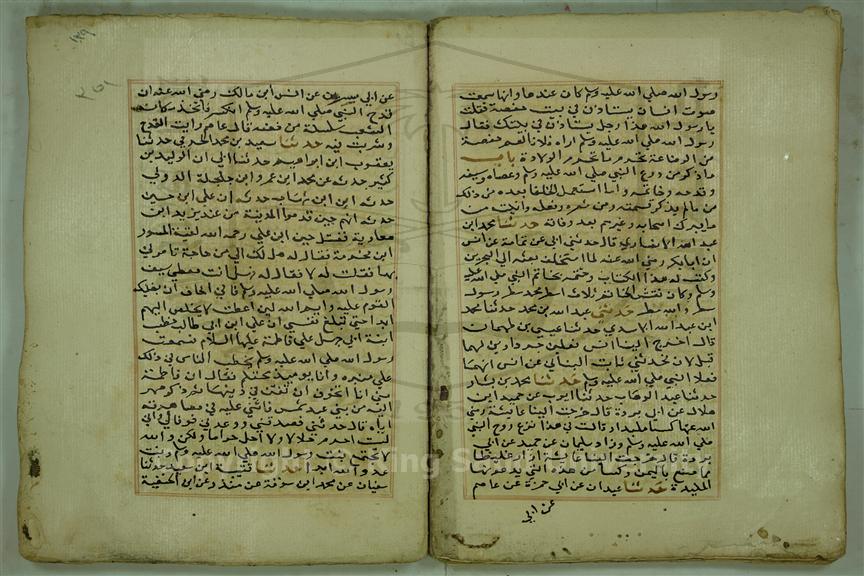 رسول الله صلى الله عليه وسلم كان عندها وانها سمعت
صوت انسان يستاذن في بيت حفصة فقلت
يا رسول الله هذا رجل يستاذن في بيتك فقال
رسول الله صلى الله عليه وسلم اراه فلانا لعم حفصة
من الرضاعة تحرم ما تحرم الولادة باب
ما ذكر من درع النبي صلى الله عليه وسلم وعصاه وسيفه
وقدحه وخاتمه وما استعمل الخلفا بعده من ذلك
من ما لم يذكر قسمته ومن شعره ونعله وانيته من
ما يبرك اصحابه وغيرهم بعد وفاته حدثنا محمد ابن
عبد الله الانصاري قال حدثني ابي عن ثمامة عن انس
ان ابا بكر رضي الله عنه لما استخلف بعثه الى البحرين
وكتب له هذا الكتاب وختمه بخاتم النبي صلى الله عليه
وسلم وكان نقش الخاتم ثلاث اسطر محمد سطر رسول
سطر والله سطر حدثني عبد الله بن محمد حدثنا محمد
ابن عبد الله الاسدي حدثنا عيسى بن طهمان
قال اخرج الينا انس نعلين جرداوين لهما
قبالان فحدثني ثابت البناني عن انس انهما
نعلا النبي صلى الله عليه وسلم حدثنا محمد بن بشار
حدثنا عبد الوهاب حدثنا ايوب عن حميد ابن
هلال عن ابي بردة قال اخرجت الينا عائشة رضي
الله عنها كساء ملبدا وقالت في هذا نزع روح النبي
صلى الله عليه وسلم وزاد سليمان عن حميد عن ابي
بردة قال اخرجت الينا عائشة ازارا غليظا
مما يصنع باليمن وكساء من هذا التي يدعونها
الملبدة حدثنا عبدان عن ابي حمزة عن عاصم
عن ابن
١٣٩
عن ابن سيرين عن انس ابن مالك رضي الله عنه ان
قدح النبي صلى الله عليه وسلم انكسر فاتخذ مكان
الشعب سلسلة من فضة قال عاصم رايت القدح
وشربت فيه حدثنا سعيد بن محمد الجرمي حدثنا
يعقوب ابن ابراهيم حدثنا ابي ان الوليد بن
كثير حدثه عن محمد ابن عمرو ابن حلحلة الدولي
حدثه ان ابن شهاب حدثه ان علي ابن حسين
حدثه انهم حين قدموا المدينة من عند يزيد ابن
معاوية مقتل حسين ابن علي رحمه الله لقيه المسور
ابن مخرمة فقال له هل لك الي من حاجة تامرني
بها فقلت له لا فقال له فهل انت معطي سيف
رسول الله صلى الله عليه وسلم فاني اخاف ان يغلبك
القوم عليه وايم الله لين اعطيتنيه لا يخلص اليهم
ابدا حتى تبلغ نفسي ان علي ابن ابي طالب خطب
ابنة ابي جهل على فاطمة عليها السلام فسمعت
رسول الله صلى الله عليه وسلم يخطب الناس في ذلك
على منبره وانا يوميذ محتلم فقال ان فاطمة
مني وانا اتخوف ان تفتن في دينها ثم ذكر صهر
اله من بني عبد شمس فاثنى عليه في مصاهرته
اياه قال حدثني فصدقني ووعدني فوفى لي واني
لست احرم حلالا ولا احل حراما ولكن والله
لا تجتمع بنت رسول الله صلى الله عليه وسلم وبنت
عدو الله ابدا حدثنا قتيبة ابن سعيد حدثنا
سفيان عن محمد ابن سوقة عن منذر عن ابن الحنفية